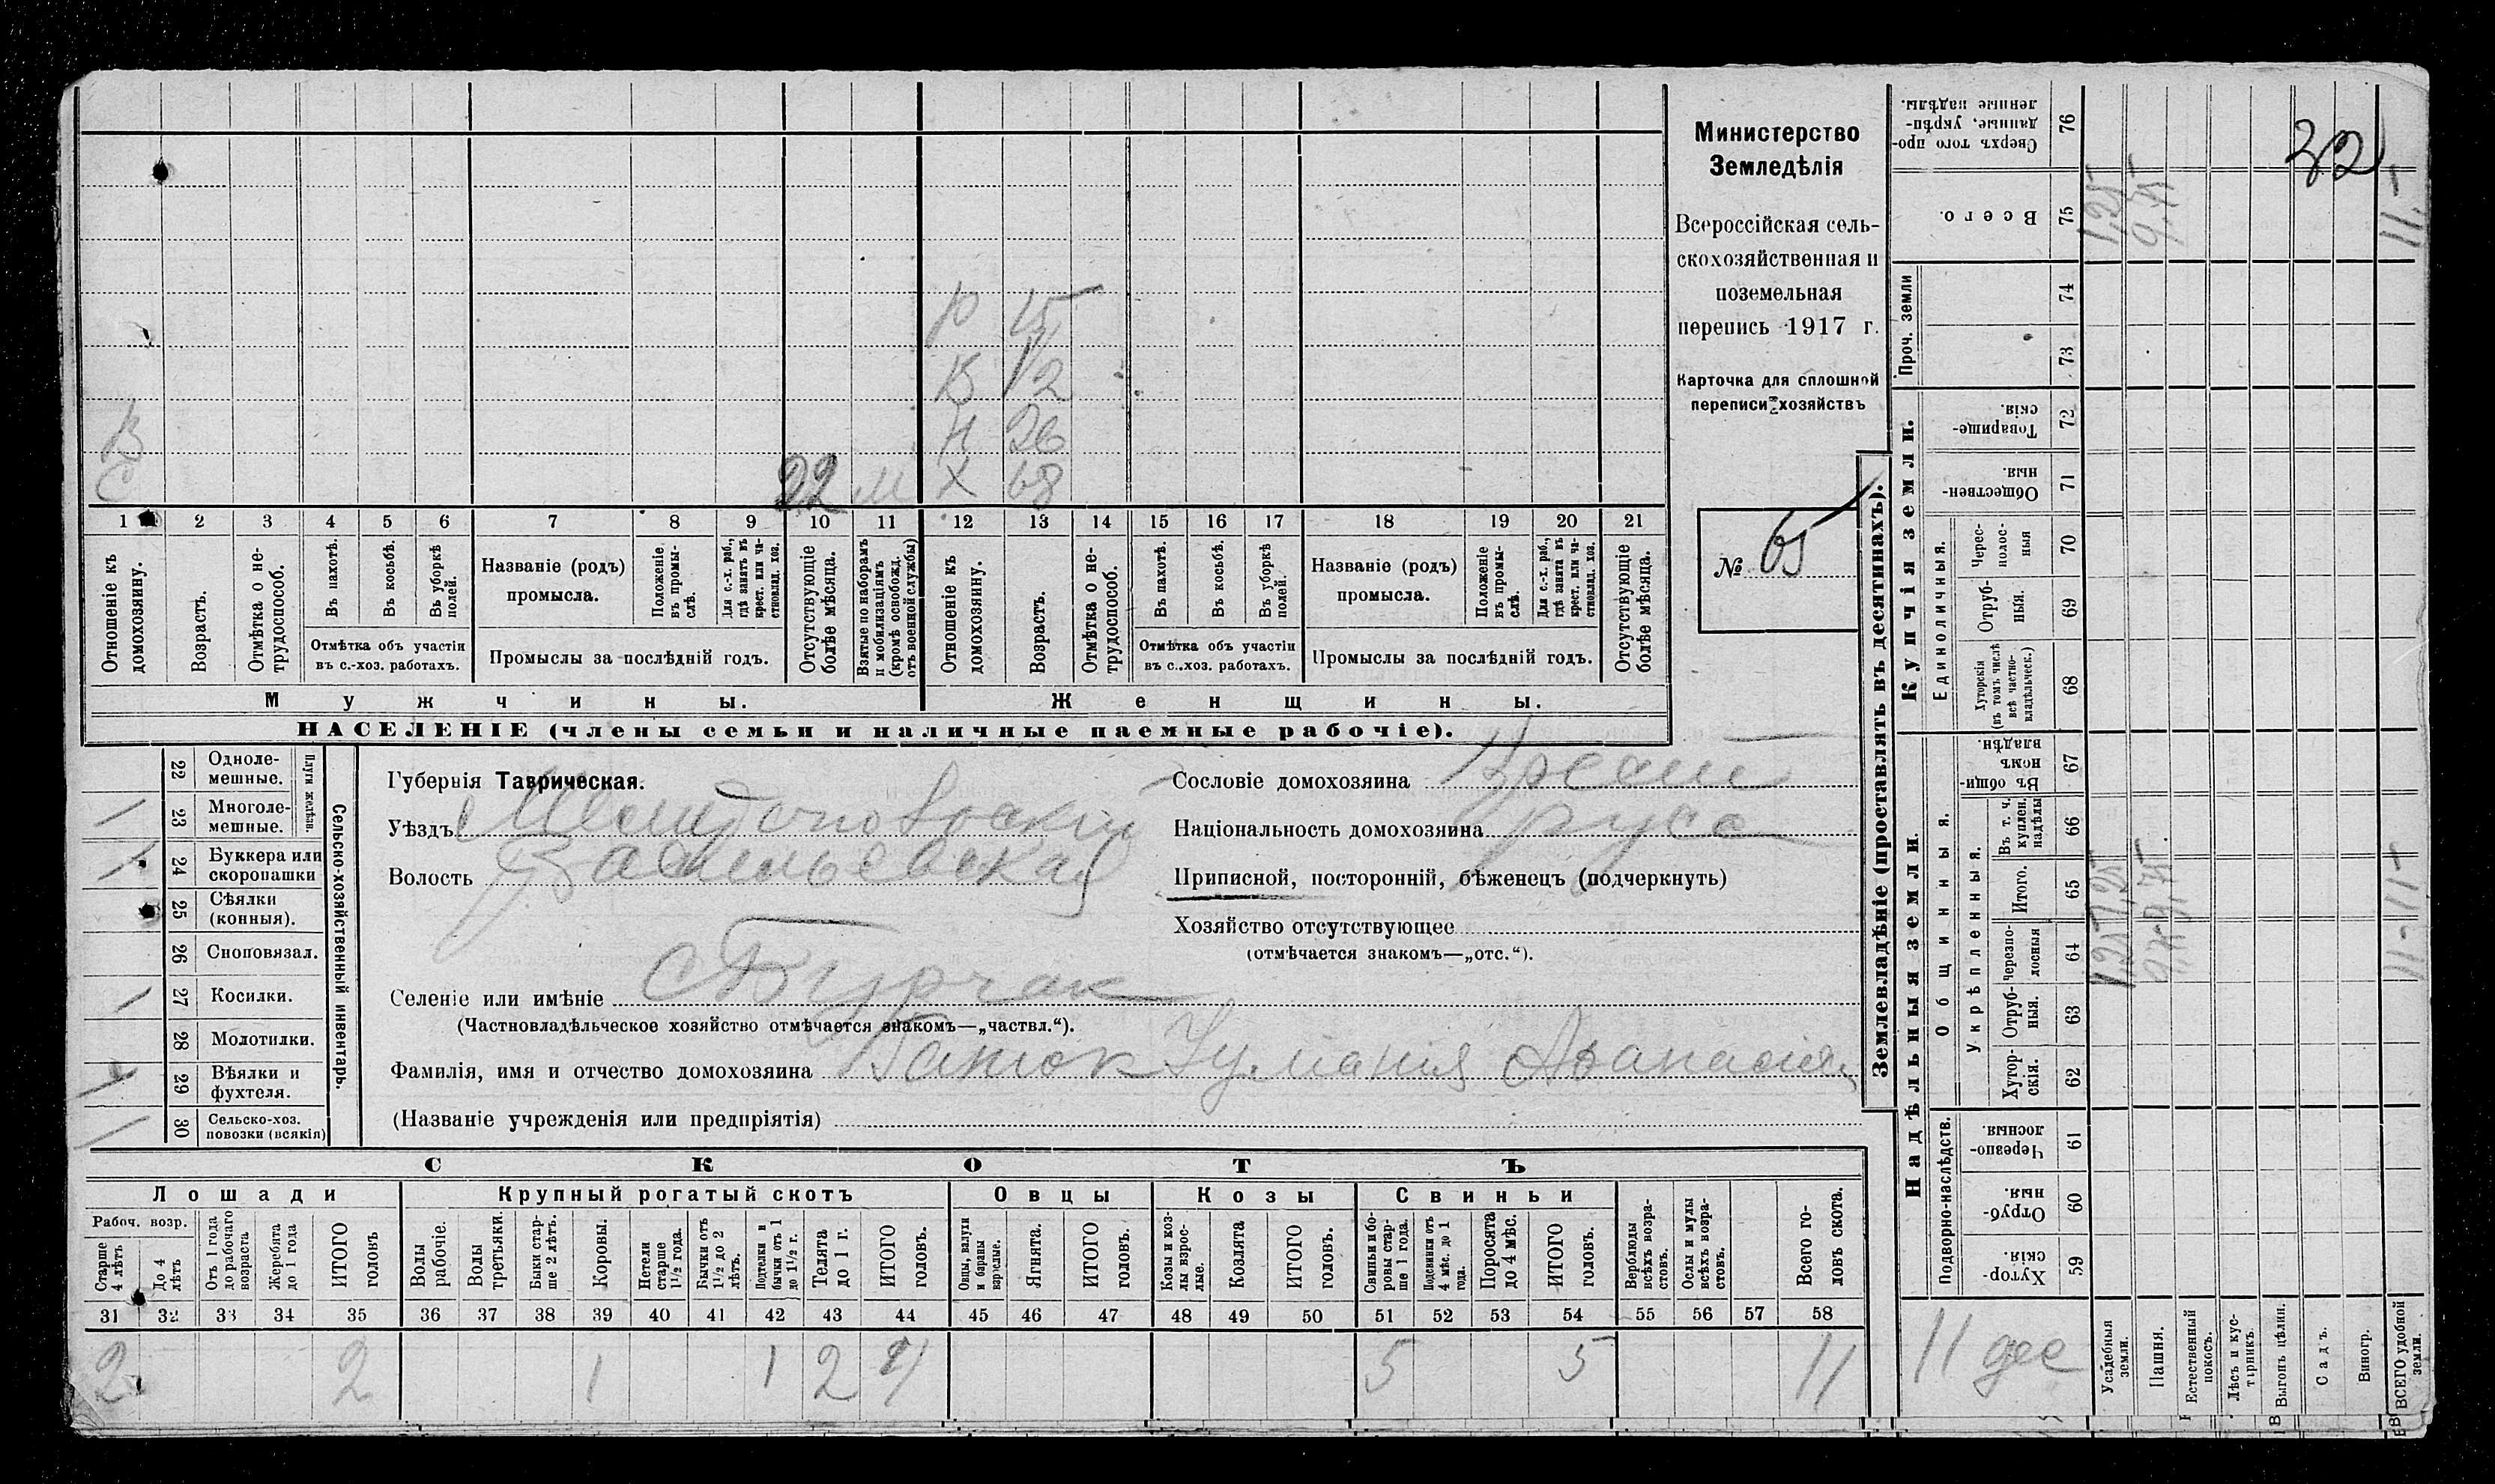 Министерство
Земледѣлія
Всероссійская сель-
скохозяйственная и
поземельная
перепись 1917 г.
Карточка для сплошной
переписи хозяйствъ
№ 65
32
Ю 15
В 12
Н 26
Х 68
В
С
22 м
1 2 3 4 5 6 7 8 9 10 11 12 13 14 15 16 17 18 19 20 21
Отношеніе къ домохозяину.
Возрастъ.
Отмѣтка о не-трудоспособ.
Въ пахотѣ.
Въ косьбѣ.
Въ уборкѣ полей.
Отмѣтка объ участіи
въ с.-хоз. работахъ.
Названіе (родъ)
промысла.
Положеніе въ промы-слѣ.
Для с.-х. раб., гдѣ занятъ въ крест. или ча-стновлад. хоз.
Промыслы за послѣдній годъ.
Отсутствующіе болѣе мѣсяца.
Взятые по наборамъ и мобилизаціямъ (кромѣ освобожд. отъ военной службы)
Отношеніе къ домохозяину.
Возрастъ.
Отмѣтка о не-трудоспособ.
Въ пахотѣ.
Въ косьбѣ.
Въ уборкѣ полей.
Отмѣтка объ участіи
въ с.-хоз. работахъ.
Названіе (родъ)
промысла.
Положеніе въ промы-слѣ.
Для с.-х. раб., гдѣ занята въ крест. или ча-стновлад. хоз.
Промыслы за послѣдній годъ.
Отсутствующіе болѣе мѣсяца.
Мужчины. Женщины.
НАСЕЛЕНІЕ (члены семьи и наличные наемные рабочіе).
Сельско-хозяйственный инвентарь.
Плуги желѣзн.
22 Одноле-мешные.
23 Многоле-мешные.
24 Буккера или скоропашки
25 Сѣялки (конныя).
26 Сноповязал.
27 Косилки.
28 Молотилки.
29 Вѣялки и фухтеля.
30 Сельско-хоз. повозки (всякія)
Губернія Таврическая.
Уѣздъ Мелитопольскій
Волость Васильевская
Селеніе или имѣніе с Бурчак
(Частновладѣльческое хозяйство отмѣчается знакомъ—„частвл.“).
Фамилія, имя и отчество домохозяина Афанасія
(Названіе учрежденія или предпріятія)
Сословіе домохозяина Крест
Національность домохозяина русс
Приписной, посторонній, бѣженецъ (подчеркнуть)
Хозяйство отсутствующее
(отмѣчается знакомъ—„отс.“).
СКОТЪ
Лошади Крупный рогатый скотъ Овцы Козы Свиньи
Рабоч. возр.
Старше 4 лѣтъ
До 4 лѣтъ
Отъ 1 года до рабочаго возраста
Жеребята до 1 года
ИТОГО головъ
Волы рабочіе.
Волы третьяки.
Быки стар-ше 2 лѣтъ.
Коровы.
Нетели старше 1½ года.
Бычки отъ 1½ до 2 лѣтъ.
Подтелки и бычки отъ 1 до 1½ г.
Телята до 1 г.
ИТОГО головъ.
Овцы, валухи и бараны взрослые.
Ягнята.
ИТОГО головъ.
Козы и коз-лы взрос-лые.
Козлята
ИТОГО головъ.
Свиньи и бо-ровы стар-ше 1 года.
Подсвинки отъ 4 мѣс. до 1 года.
Поросята до 4 мѣс.
ИТОГО головъ.
Верблюды всѣхъ возра-стовъ.
Ослы и мулы всѣхъ возра-стовъ.
Всего го-ловъ скота.
31 32 33 34 35 36 37 38 39 40 41 42 43 44 45 46 47 48 49 50 51 52 53 54 55 56 57 58
2 2 1 1 2 4 5 5 11
Землевладѣніе (проставлять въ десятинахъ).
Купчія земли.
Надѣльныя земли.
Сверхъ того про-данные, укрѣп-ленные надѣлы. 76
Всего. 75
Проч. земли
74
73
Товарище-скія. 72
Обществен-ныя. 71
Единоличныя.
Черес-полос-ныя 70
Отруб-ныя. 69
Хуторскія (въ томъ числѣ всѣ частно-владѣльческ.) 68
Общинныя.
Въ общи-номъ владѣн. 67
Укрѣпленныя.
Въ т. ч. куплен. надѣлы 66
Итого. 65
Черезпо-лосныя 64
Отруб-ныя. 63
Хутор-скія. 62
Подворно-наслѣдств.
Черезпо-лосныя. 61
Отруб-ныя. 60
Хутор-скія. 59
11 дес
Усадебныя земли.
Пашня.
Естественный покосъ.
Лѣсъ и кус-тарникъ.
Выгонъ цѣлин.
Садъ.
Виногр.
ВСЕГО удобной земли.
1,25 1,25 1,25
9,75 9,75 9,75
11- 11- 11-